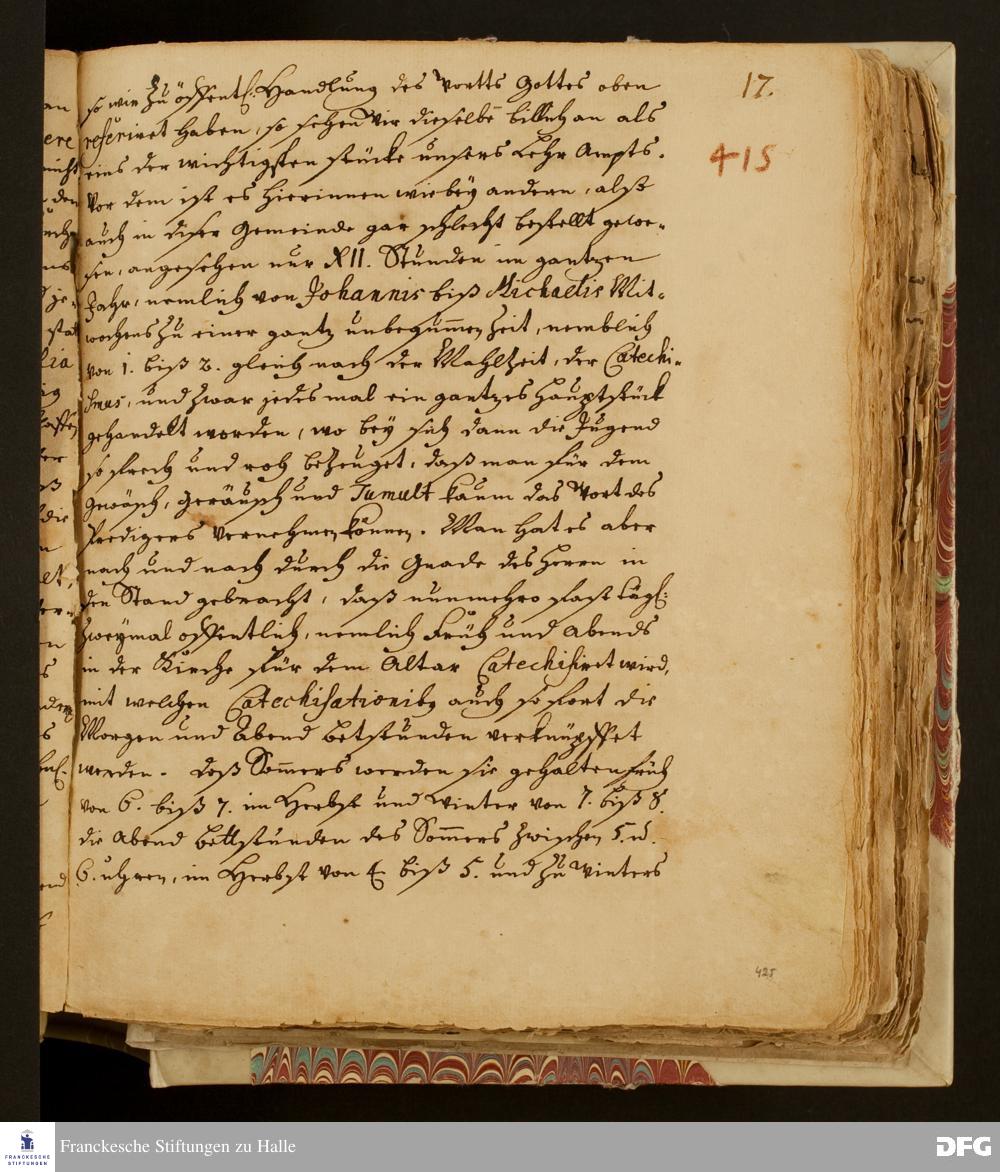 17.
415
so wir zu öffentl: Handlung des Wortts Gottes oben
referiret haben, so sehen wir dieselbe billich an als
eins der wichtigsten stücke unsers Lehr Ampts.
Vor dem ist es hierinnen wie bey andern, alß
auch in diser Gemeinde gar schlecht bestellt gewe-
sen, angesehen nur XII. Stunden im gantzen
Jahr, nemlich von Johannis biß Michaelis Mit-
wochens zu einer gantz unbequemen Zeit, nemblich
von 1. biß 2. gleich nach der Mahlzeit, der Catechi-
smus, und zwar jedes mal ein gantzes Hauptstück
gehandelt worden, wo bey sich dann die Jugend
so frech und roh bezeuget, daß man für dem
gewäsch, geräusch und Tumult kaum das Wort des
Predigers vernehmen können. Man hat es aber
nach und nach durch die Gnade des Herrn in
den Stand gebracht, daß nunmehro fast tägl:
zweymal offentlich, nemlich Früh und Abends
in der Kirche für dem Altar Catechisiret wird,
mit welchen Catechisationibq auch so fort die
Morgen und Abend betstunden verknüpffet
werden. Deß Sommers werden sie gehalten früh
von 6. biß 7. im Herbst und Winter von 7. biß 8.
die Abend Bettstunden des Sommers zwischen 5. u.
6. uhren, im Herbst von 4. biß 5. und zu Winters
425
FRANCKESCHE STIFTUNGEN
Franckesche Stiftungen zu Halle
DFG